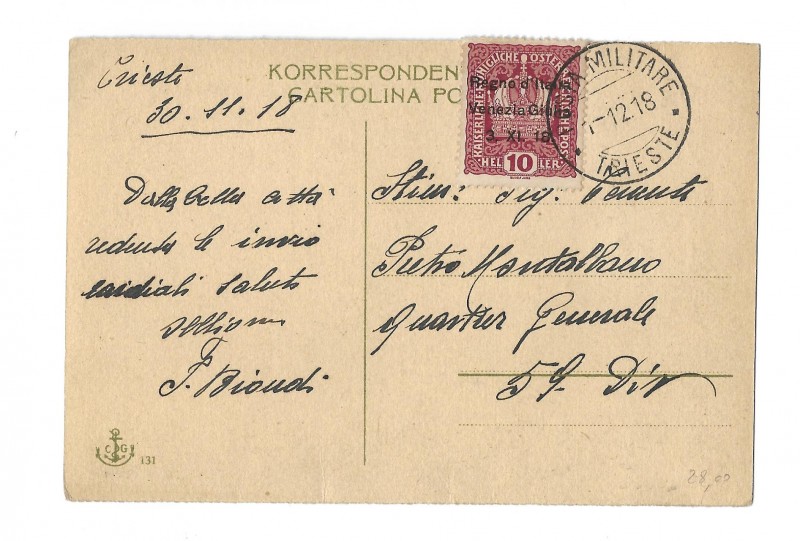 Trieste
30.11.18
KORRESPONDEN
CARTOLINA PO
KAISERLICHE KÖNIGLICHE ÖSTERREICHISCHE POST
Regno d'Italia
Venezia Giulia
3. XI. 18.
HEL 10 LER
A MILITARE
1-12.18
TRIESTE
Dalla bella città
redenta le invio
cordiali saluti
F. Biondi
Stim: Sig. Tenente
Pietro Montalbano
Quartier Generale
59 Div
C G
131
28,00